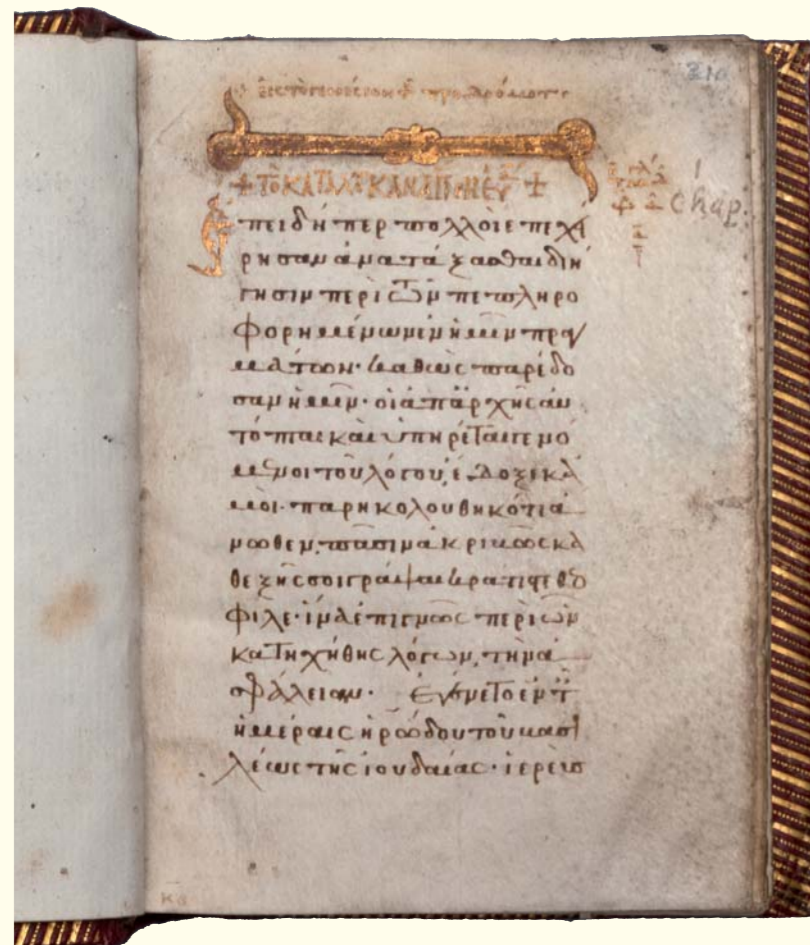 210
+ ΤΟ ΚΑΤΑ ΛΟΥΚΑΝ ΑΓΙΟΝ ΕΥ +
1
chap.
Ἐπειδήπερ πολλοὶ ἐπεχεί
ρησαν ἀνατάξασθαι διή
γησιν περὶ τῶν πεπληρο
φορημένων ἐν ἡμῖν πραγ
μάτων· καθὼς παρέδο
σαν ἡμῖν· οἱ ἀπαρχῆς αὐ
τόπται καὶ ὑπηρέται γενό
μενοι τοῦ λόγου, ἔδοξε κἀ
μοὶ· παρηκολουθηκότι ἄ
νωθεν, πᾶσιν ἀκριβῶς κα
θεξῆς σοι γράψαι κράτιστε θεό
φιλε· ἵνα ἐπιγνῶς περὶ ὧν
κατηχήθης λόγων, τὴν ἀ
σφάλειαν· Ἐγένετο ἐν τ
ἡμέραις ἡρώδου τοῦ βασι
λέως τῆς ἰουδαίας· ἱερεύς